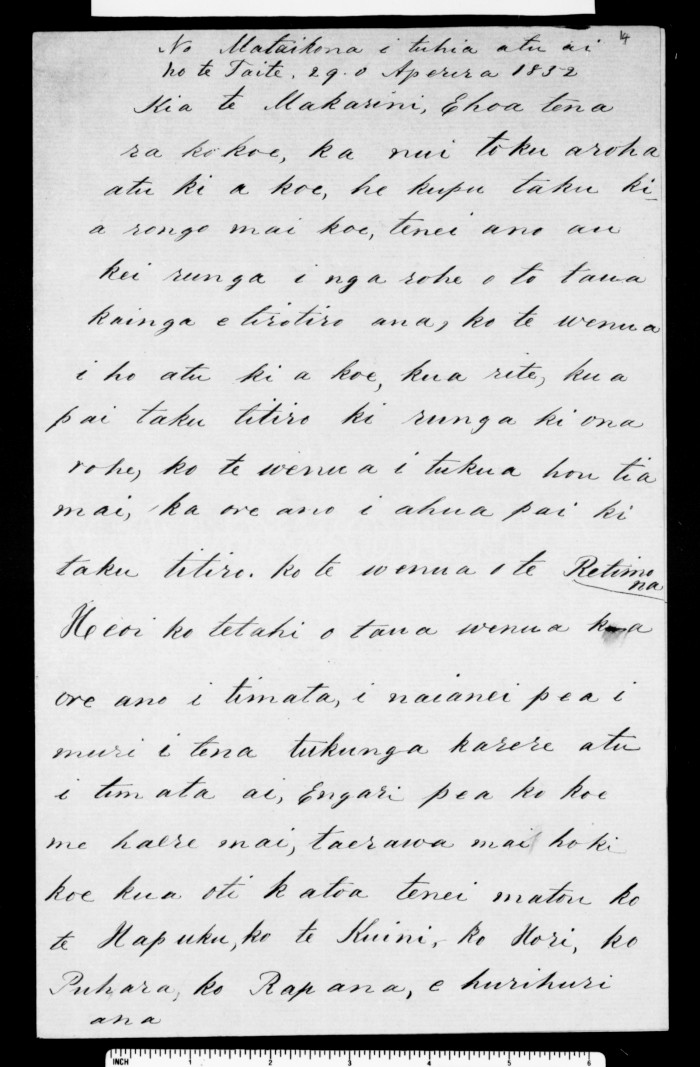 14
No Mataikona i tuhia atu ai
ho te Taite, 29. o Aperira 1852
Kia te Makarini, Ehoa tena
ra ko koe, ka nui toku aroha
atu ki a koe, he kupu taku ki-
a rongo mai koe, tenei ano au
kei runga i nga rohe o to taua
kainga e tirotiro ana, ko te wenua
i ho atu ki a koe, kua rite, kua
pai taku titiro ki runga ki ona
rohe, ko te wenua i tukua hou tia
mai, ka ore ano i ahua pai ki
taku titiro. ko te wenua o te Retimo
na
Heoi ko tetahi o taua wenua
ore ano i timata, i naianei pea i
muri i tena tukunga karere atu
i timata ai, Engari pea ko koe
me haere mai, taerawa mai hoki
koe kua oti katoa tenei matou ko
te Hapuku, ko te Kuini, ko Hori, ko
Puhara, ko Rapana, e hurihuri
ana
INCH 1 2 3 4 5 6